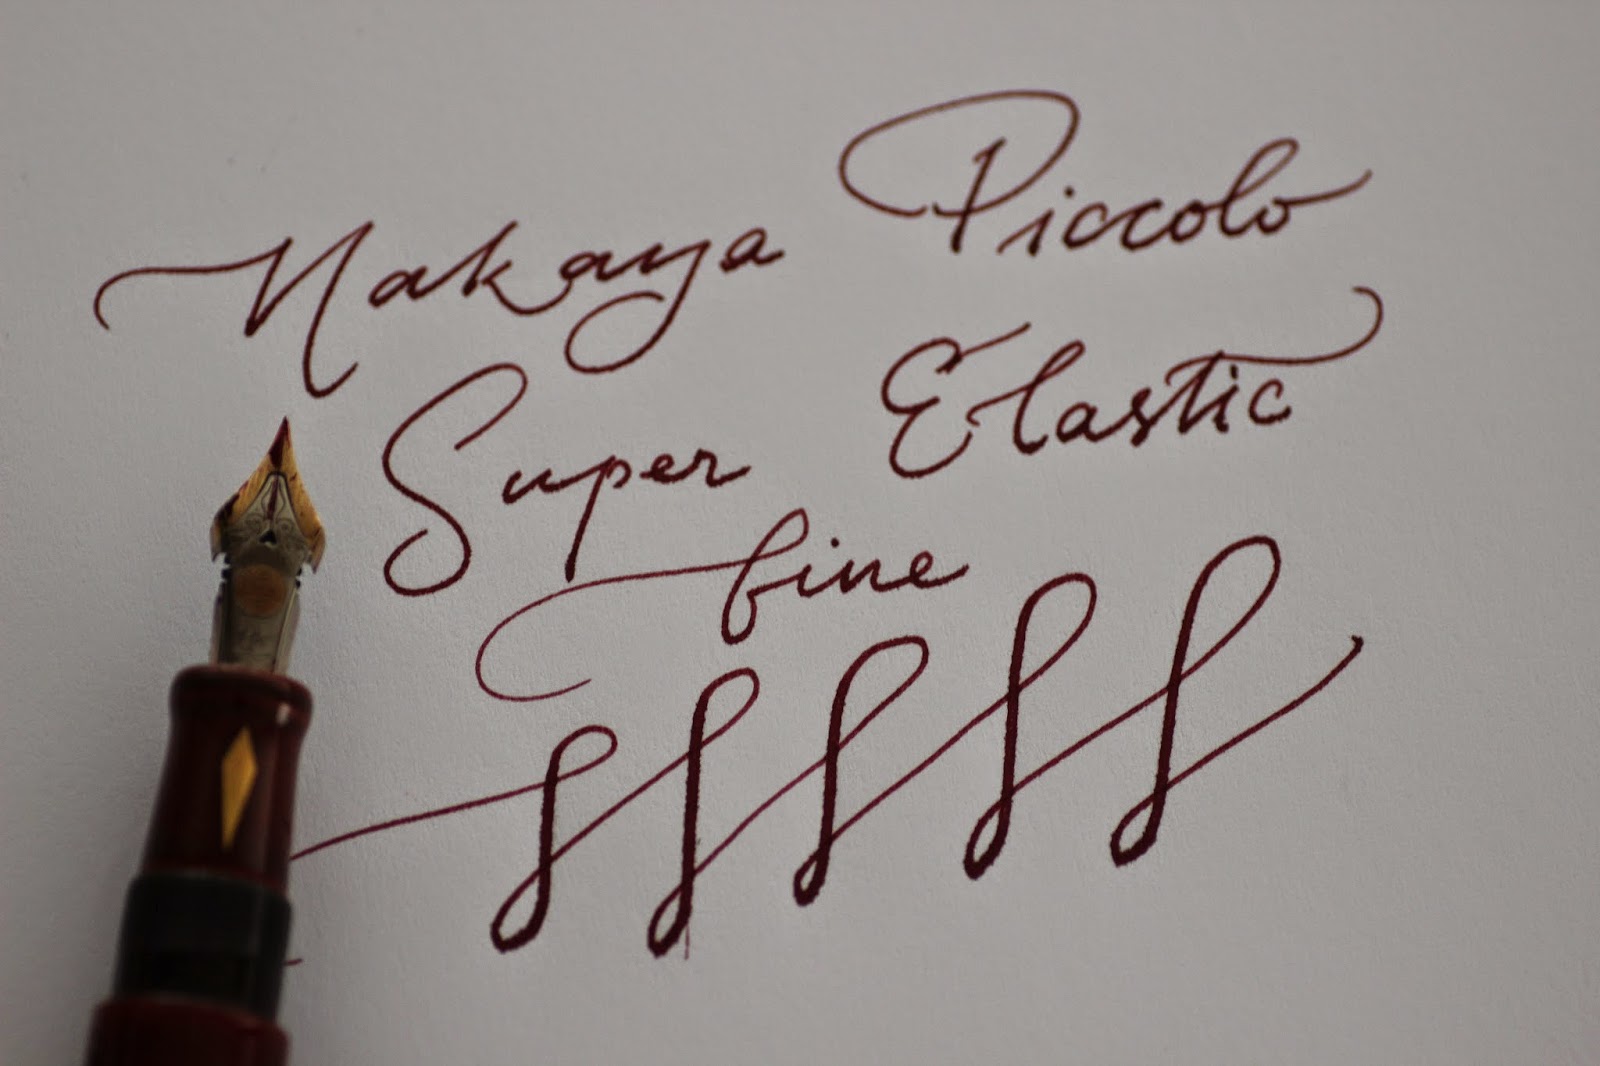 Nakaya Piccolo
Super Elastic
fine